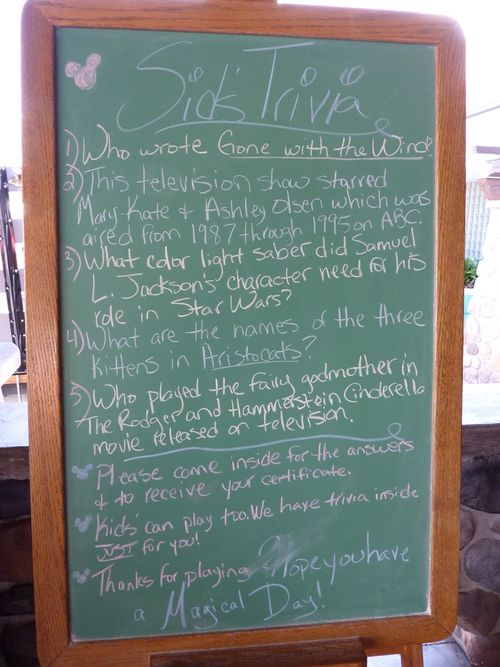 Sid's Trivia
1) Who wrote Gone with the Wind?
2) This television show starred
Mary-Kate & Ashley Olsen which was
aired from 1987 through 1995 on ABC.
3) What color light saber did Samuel
L. Jackson's character need for his
role in Star Wars?
4) What are the names of the three
kittens in Aristocats?
5) Who played the fairy godmother in
The Rodger and Hammerstein Cinderella
movie released on television.
Please come inside for the answers
& to receive your certificate.
Kids can play too. We have trivia inside
JUST for you!
Thanks for playing Hope you have
a Magical Day!